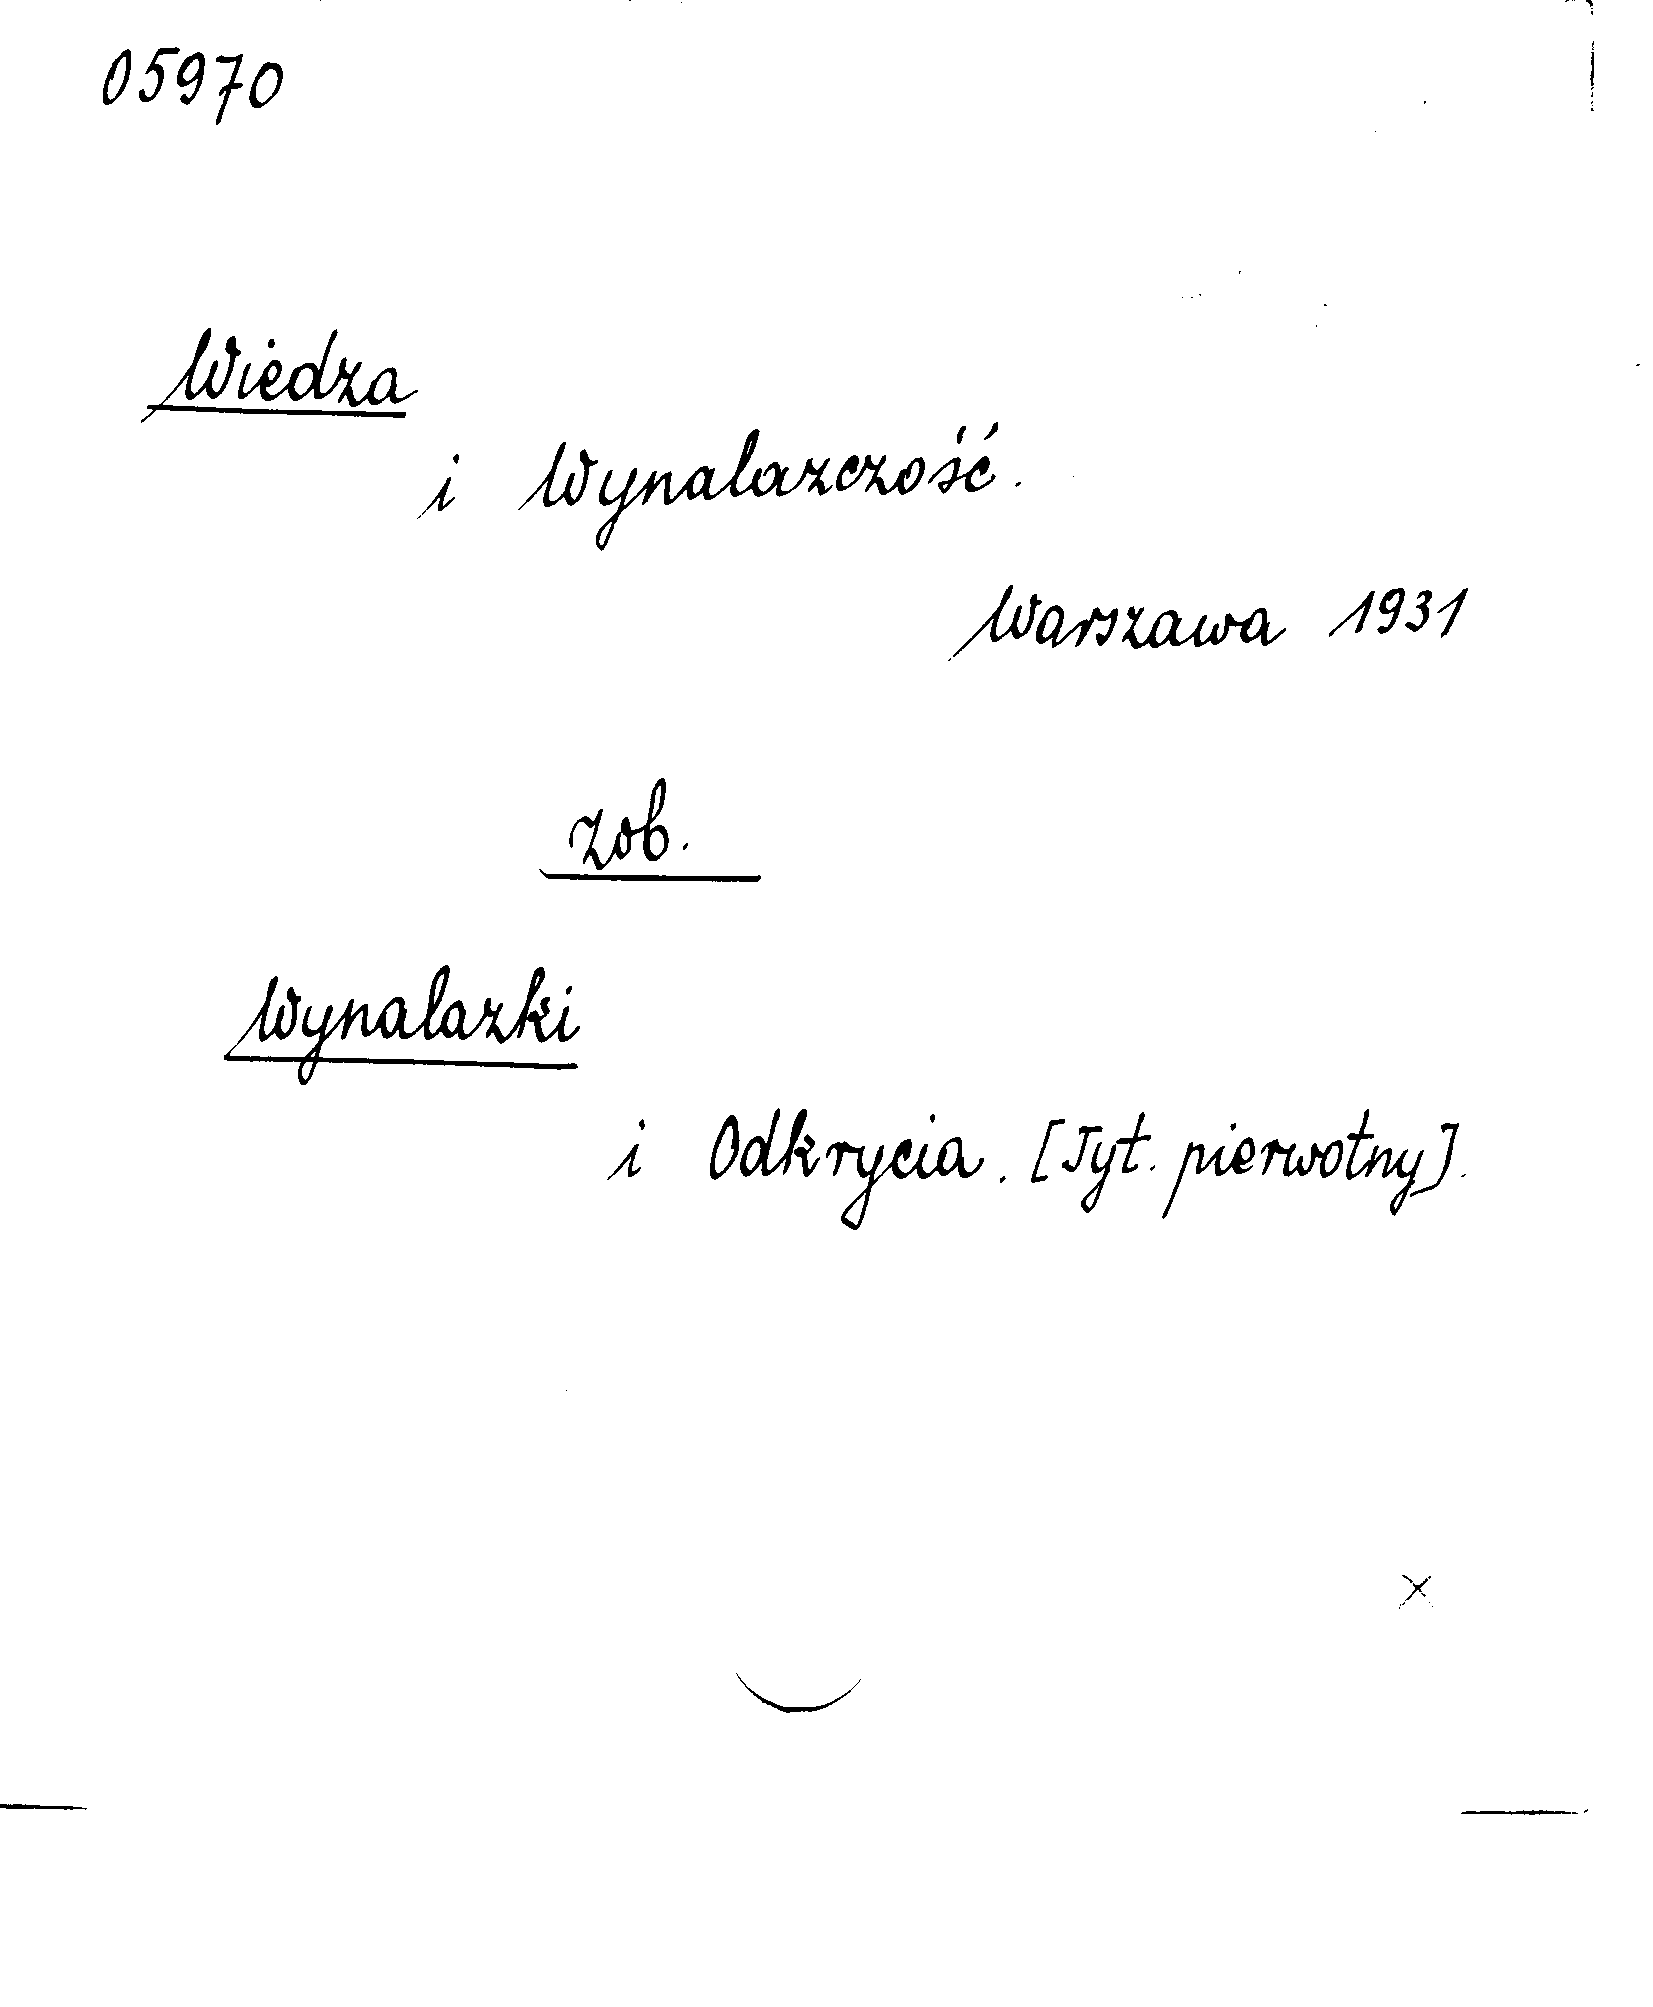 05970
Wiedza
i Wynalazczość.
Warszawa 1931
zob.
Wynalazki
i Odkrycia. [Tyt. pierwotny].